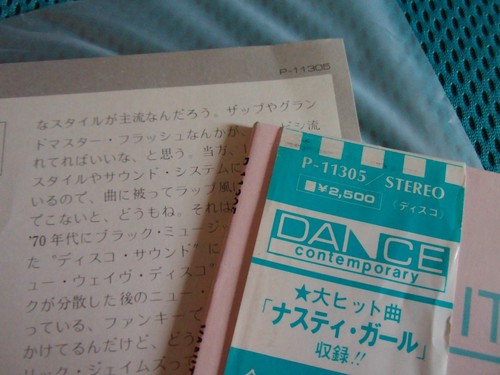 P-11305
なスタイルが主流なんだろう。ザップやグラン
ドマスター・フラッシュなんかが、
流
れてればいいな、と思う。当方、
スタイルやサウンド・システムに
いるので、曲に被ってラップ風に
てこないと、どうもね。それは
'70年代にブラック・ミュージ
た "ディスコ・サウンド" に
ュー・ウェイヴ・ディスコ
クが分散した後のニュー・
っている、ファンキーで
かけてるんだけど、どう
リック・ジェイムズって
P-11305/STEREO
¥2,500
(ディスコ)
DANCE
contemporary
★大ヒット曲
「ナスティ・ガール」
収録!!
IT